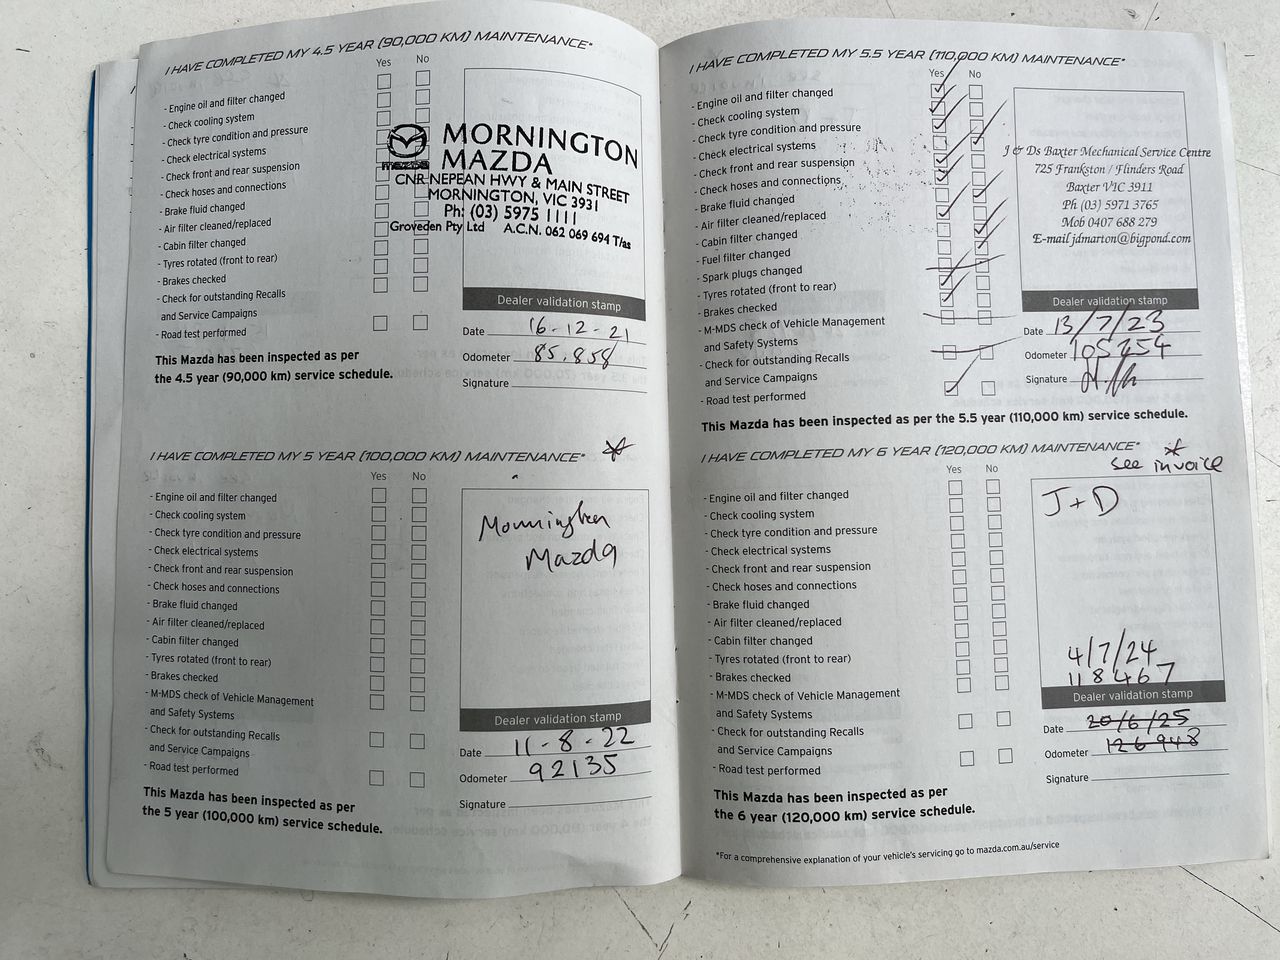 I HAVE COMPLETED MY 4.5 YEAR (90,000 KM) MAINTENANCE*
Yes No
- Engine oil and filter changed
- Check cooling system
- Check tyre condition and pressure
- Check electrical systems
- Check front and rear suspension
- Check hoses and connections
- Brake fluid changed
- Air filter cleaned/replaced
- Cabin filter changed
- Tyres rotated (front to rear)
- Brakes checked
- Check for outstanding Recalls
and Service Campaigns
- Road test performed
This Mazda has been inspected as per
the 4.5 year (90,000 km) service schedule.
mazda
MORNINGTON
MAZDA
CNR NEPEAN HWY & MAIN STREET
MORNINGTON, VIC 3931
Ph: (03) 5975 1111
Groveden Pty Ltd A.C.N. 062 069 694 T/as
Dealer validation stamp
Date 16-12-21
Odometer 85,858
Signature
I HAVE COMPLETED MY 5 YEAR (100,000 KM) MAINTENANCE*
Yes No
- Engine oil and filter changed
- Check cooling system
- Check tyre condition and pressure
- Check electrical systems
- Check front and rear suspension
- Check hoses and connections
- Brake fluid changed
- Air filter cleaned/replaced
- Cabin filter changed
- Tyres rotated (front to rear)
- Brakes checked
- M-MDS check of Vehicle Management
and Safety Systems
- Check for outstanding Recalls
and Service Campaigns
- Road test performed
This Mazda has been inspected as per
the 5 year (100,000 km) service schedule.
Mornington
Mazda
Dealer validation stamp
Date 11-8-22
Odometer 92135
Signature
I HAVE COMPLETED MY 5.5 YEAR (110,000 KM) MAINTENANCE*
Yes No
- Engine oil and filter changed
- Check cooling system
- Check tyre condition and pressure
- Check electrical systems
- Check front and rear suspension
- Check hoses and connections
- Brake fluid changed
- Air filter cleaned/replaced
- Cabin filter changed
- Fuel filter changed
- Spark plugs changed
- Tyres rotated (front to rear)
- Brakes checked
- M-MDS check of Vehicle Management
and Safety Systems
- Check for outstanding Recalls
and Service Campaigns
- Road test performed
This Mazda has been inspected as per the 5.5 year (110,000 km) service schedule.
J & Ds Baxter Mechanical Service Centre
725 Frankston / Flinders Road
Baxter VIC 3911
Ph (03) 5971 3765
Mob 0407 688 279
E-mail jdmarton@bigpond.com
Dealer validation stamp
Date 13/7/23
Odometer 105254
Signature
I HAVE COMPLETED MY 6 YEAR (120,000 KM) MAINTENANCE*
see invoice
Yes No
- Engine oil and filter changed
- Check cooling system
- Check tyre condition and pressure
- Check electrical systems
- Check front and rear suspension
- Check hoses and connections
- Brake fluid changed
- Air filter cleaned/replaced
- Cabin filter changed
- Tyres rotated (front to rear)
- Brakes checked
- M-MDS check of Vehicle Management
and Safety Systems
- Check for outstanding Recalls
and Service Campaigns
- Road test performed
This Mazda has been inspected as per
the 6 year (120,000 km) service schedule.
J + D
4/7/24
118467
Dealer validation stamp
Date 20/6/25
Odometer 126948
Signature
*For a comprehensive explanation of your vehicle's servicing go to mazda.com.au/service